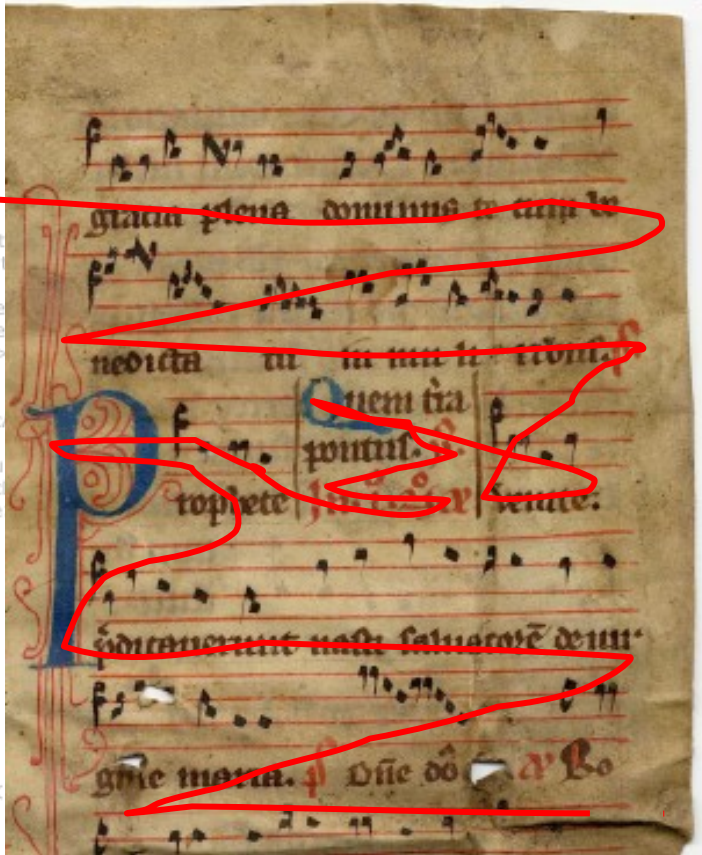 gracia plena dominus te cum be
nedicta tu in mu li
venite:
Quem t̄ra
pontus.
Prophete
p̄dicauerunt nasci saluatorē de uir
gine maria. Dn̄e Bo